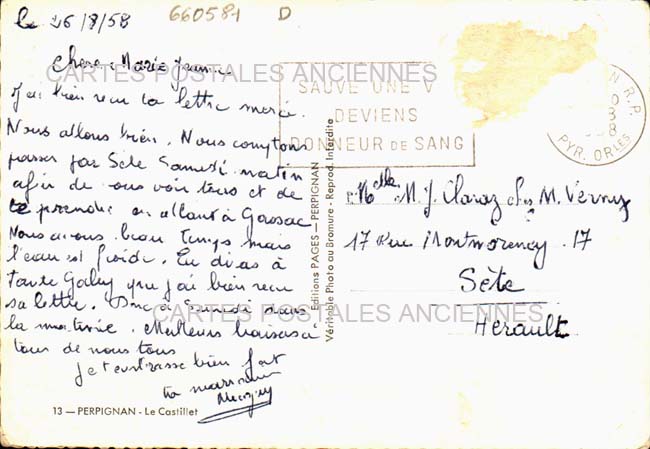 le 26/8/58
660581 D
Chère Marie Jeanne
J'ai bien reçu ta lettre merci.
Nous allons bien. Nous comptons
passer par Sète Samedi matin
afin de vous voir tous et de
te prendre en allant à
Nous avons beau temps mais
l'eau est froide. Tu diras à
Tante Gaby que j'ai bien reçu
sa lettre. Donc à Samedi dans
la matinée. Meilleurs baisers à
tous de nous tous
Je t'embrasse bien fort
ta marraine
13 — PERPIGNAN - Le Castillet
Editions PAGES — PERPIGNAN
Véritable Photo au Bromure - Reprod. Interdite
SAUVE UNE V
DEVIENS
DONNEUR DE SANG
N R.P.
PYR. ORLES
Melle M. J. Claraz chez M. Vernis
17 Rue Montmorency . 17
Sète
Hérault
CARTES POSTALES ANCIENNES
CARTES POSTALES ANCIENNES